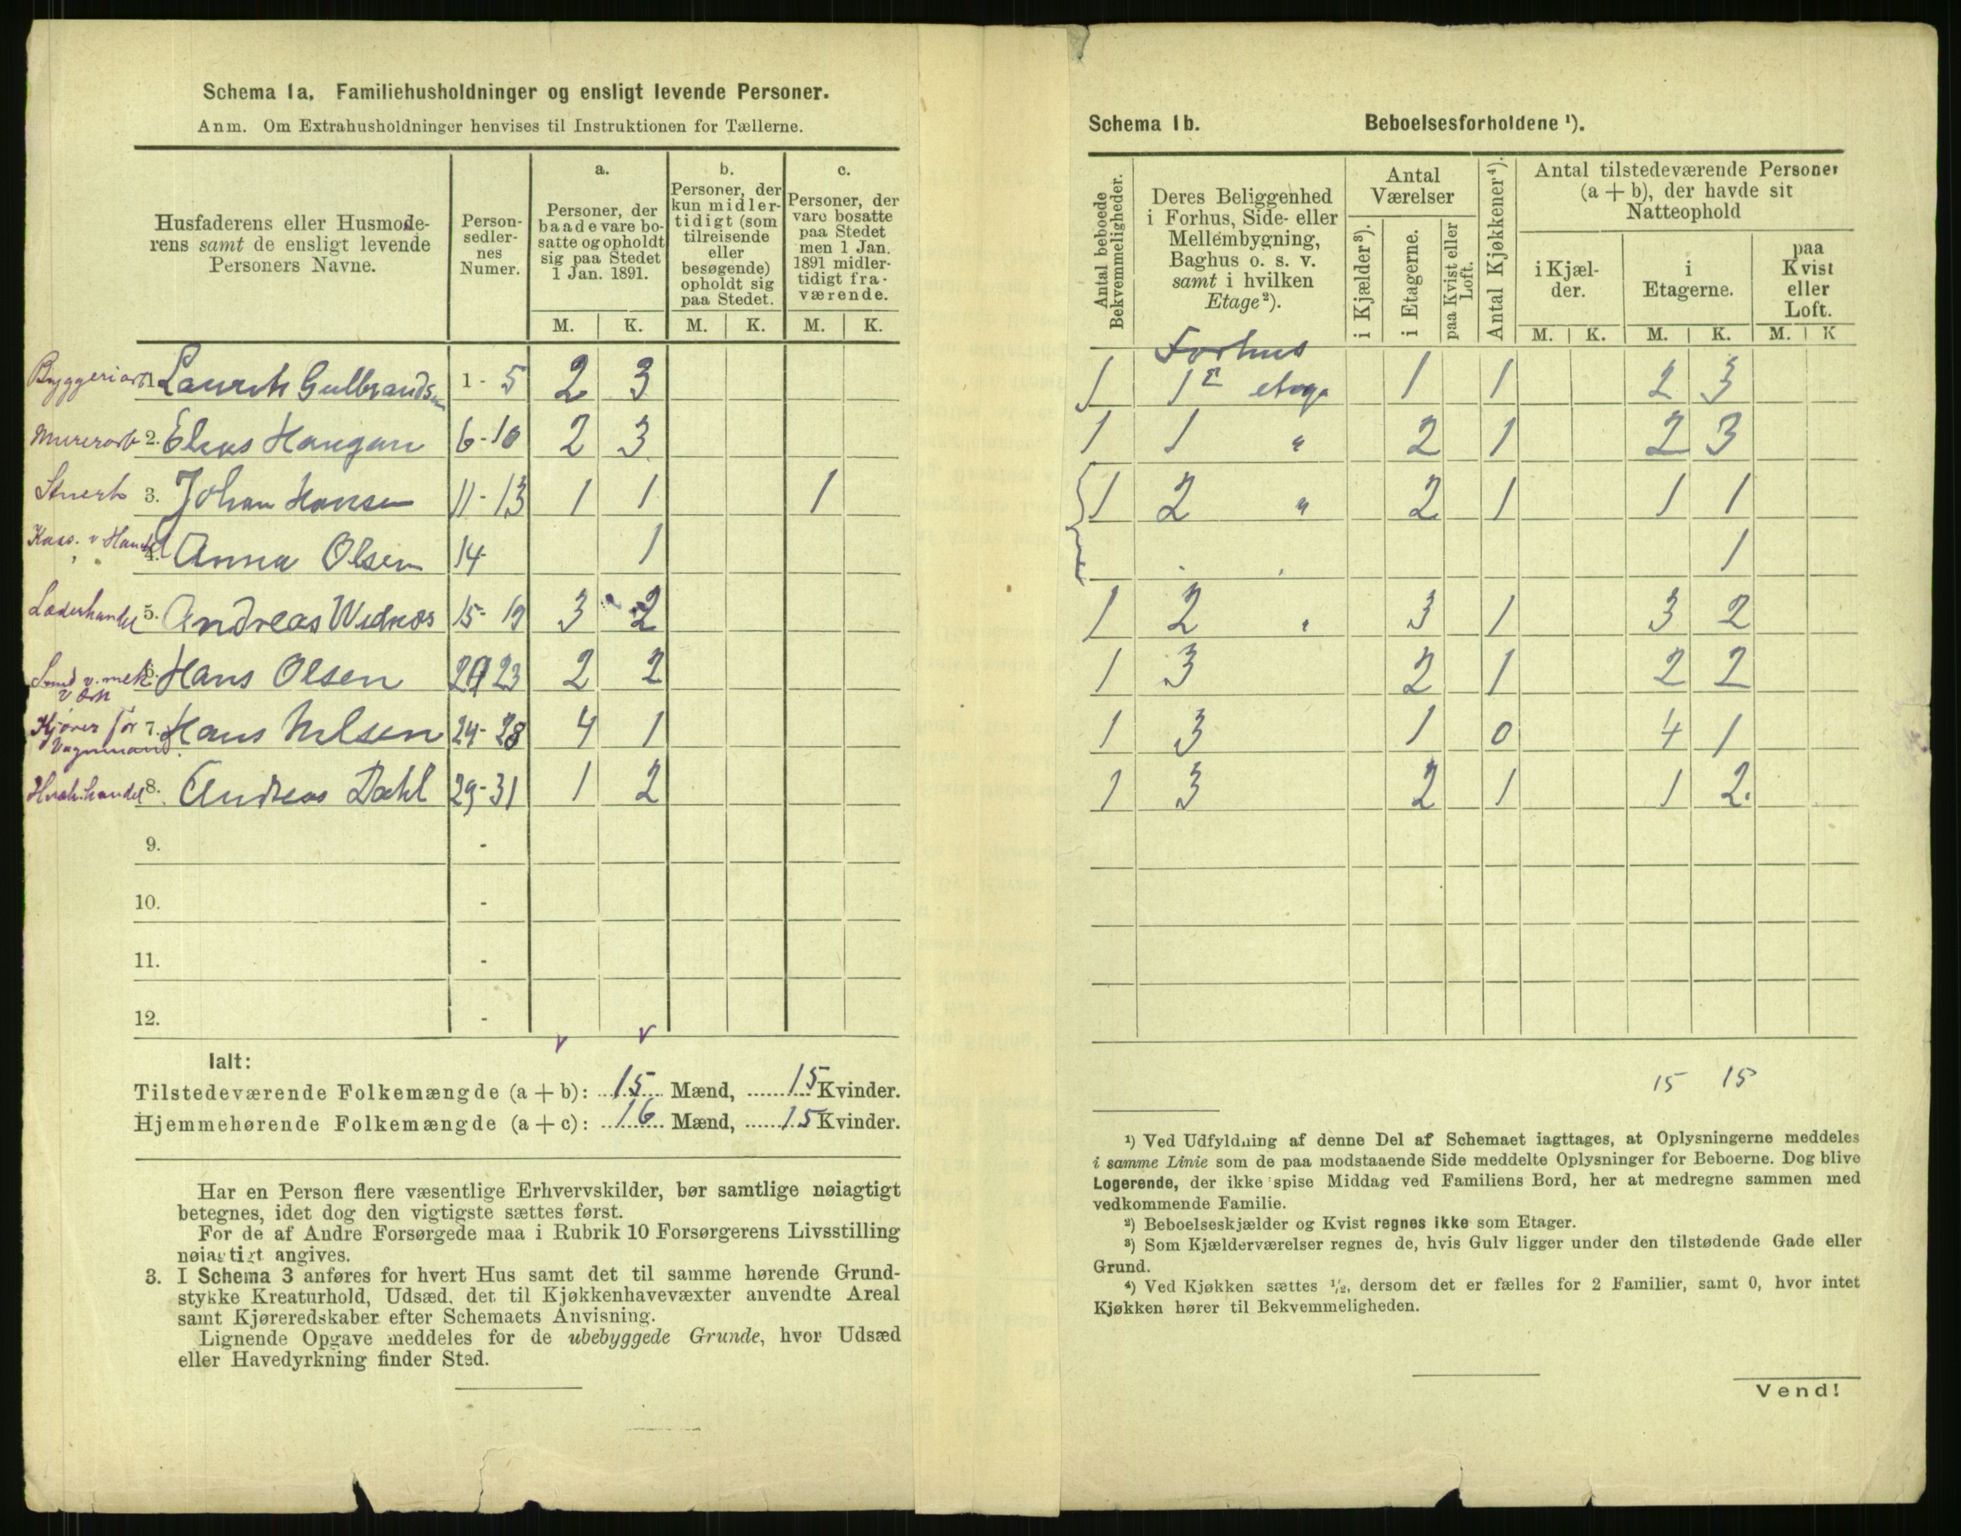 Schema 1a. Familiehusholdninger og ensligt levende Personer.
Anm. Om Extrahusholdninger henvises til Instruktionen for Tællerne.
Husfaderens eller Husmode-
rens samt de ensligt levende
Personers Navne.
Person-
sedler-
nes
Numer.
a.
Personer, der
baade vare bo-
satte og opholdt
sig paa Stedet
1 Jan. 1891.
b.
Personer, der
kun midler-
tidigt (som
tilreisende
eller
besøgende)
opholdt sig
paa Stedet.
c.
Personer, der
vare bosatte
paa Stedet
men 1 Jan.
1891 midler-
tidigt fra-
værende.
M. K. M. K. M. K.
1. Laurits Gulbrandsen 1 - 5 2 3
Murerarb 2. Elias Haugan 6-10 2 3
3. Johan Hansen 11-13 1 1 1
Kass. v Handel 4. Anna Olsen 14 1
Læderhandel 5. Andreas Widnes 15-19 3 2
Smed v. mek. 6. Hans Olsen 20 23 2 2
v Værk
Kjører for 7. Hans Nilsen 24-28 4 1
Vognmand.
8. Andreas Dahl 29-31 1 2
9. -
10. -
11. -
12. -
Ialt:
Tilstedeværende Folkemængde (a + b): 15 Mænd, 15 Kvinder.
Hjemmehørende Folkemængde (a + c): 16 Mænd, 15 Kvinder.
Har en Person flere væsentlige Erhvervskilder, bør samtlige nøiagtigt
betegnes, idet dog den vigtigste sættes først.
For de af Andre Forsørgede maa i Rubrik 10 Forsørgerens Livsstilling
nøiagtigt angives.
3. I Schema 3 anføres for hvert Hus samt det til samme hørende Grund-
stykke Kreaturhold, Udsæd, det til Kjøkkenhavevæxter anvendte Areal
samt Kjøreredskaber efter Schemaets Anvisning.
Lignende Opgave meddeles for de ubebyggede Grunde, hvor Udsæd
eller Havedyrkning finder Sted.
Schema 1b. Beboelsesforholdene ¹).
Antal beboede
Bekvemmeligheder.
Deres Beliggenhed
i Forhus, Side- eller
Mellembygning,
Baghus o. s. v.
samt i hvilken
Etage²).
Antal
Værelser
i Kjælder³).
i Etagerne.
paa Kvist eller
Loft.
Antal Kjøkkener⁴).
Antal tilstedeværende Personer
(a + b), der havde sit
Natteophold
i Kjæl-
der.
i
Etagerne.
paa
Kvist
eller
Loft.
M. K. M. K. M. K
Forhus
1 1e etage 1 1 2 3
1 1 " 2 1 2 3
1 2 " 2 1 1 1
1
1 2 " 3 1 3 2
1 3 2 1 2 2
1 3 1 0 4 1
1 3 2 1 1 2.
15 15
¹) Ved Udfyldning af denne Del af Schemaet iagttages, at Oplysningerne meddeles
i samme Linie som de paa modstaaende Side meddelte Oplysninger for Beboerne. Dog blive
Logerende, der ikke spise Middag ved Familiens Bord, her at medregne sammen med
vedkommende Familie.
²) Beboelseskjælder og Kvist regnes ikke som Etager.
³) Som Kjælderværelser regnes de, hvis Gulv ligger under den tilstødende Gade eller
Grund.
⁴) Ved Kjøkken sættes ½, dersom det er fælles for 2 Familier, samt 0, hvor intet
Kjøkken hører til Bekvemmeligheden.
Vend!